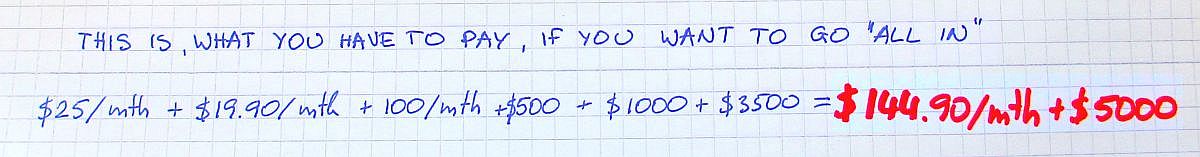 THIS IS, WHAT YOU HAVE TO PAY, IF YOU WANT TO GO "ALL IN"
$25/mth + $19.90/mth + 100/mth +$500 + $1000 + $3500 = $144.90/mth + $5000